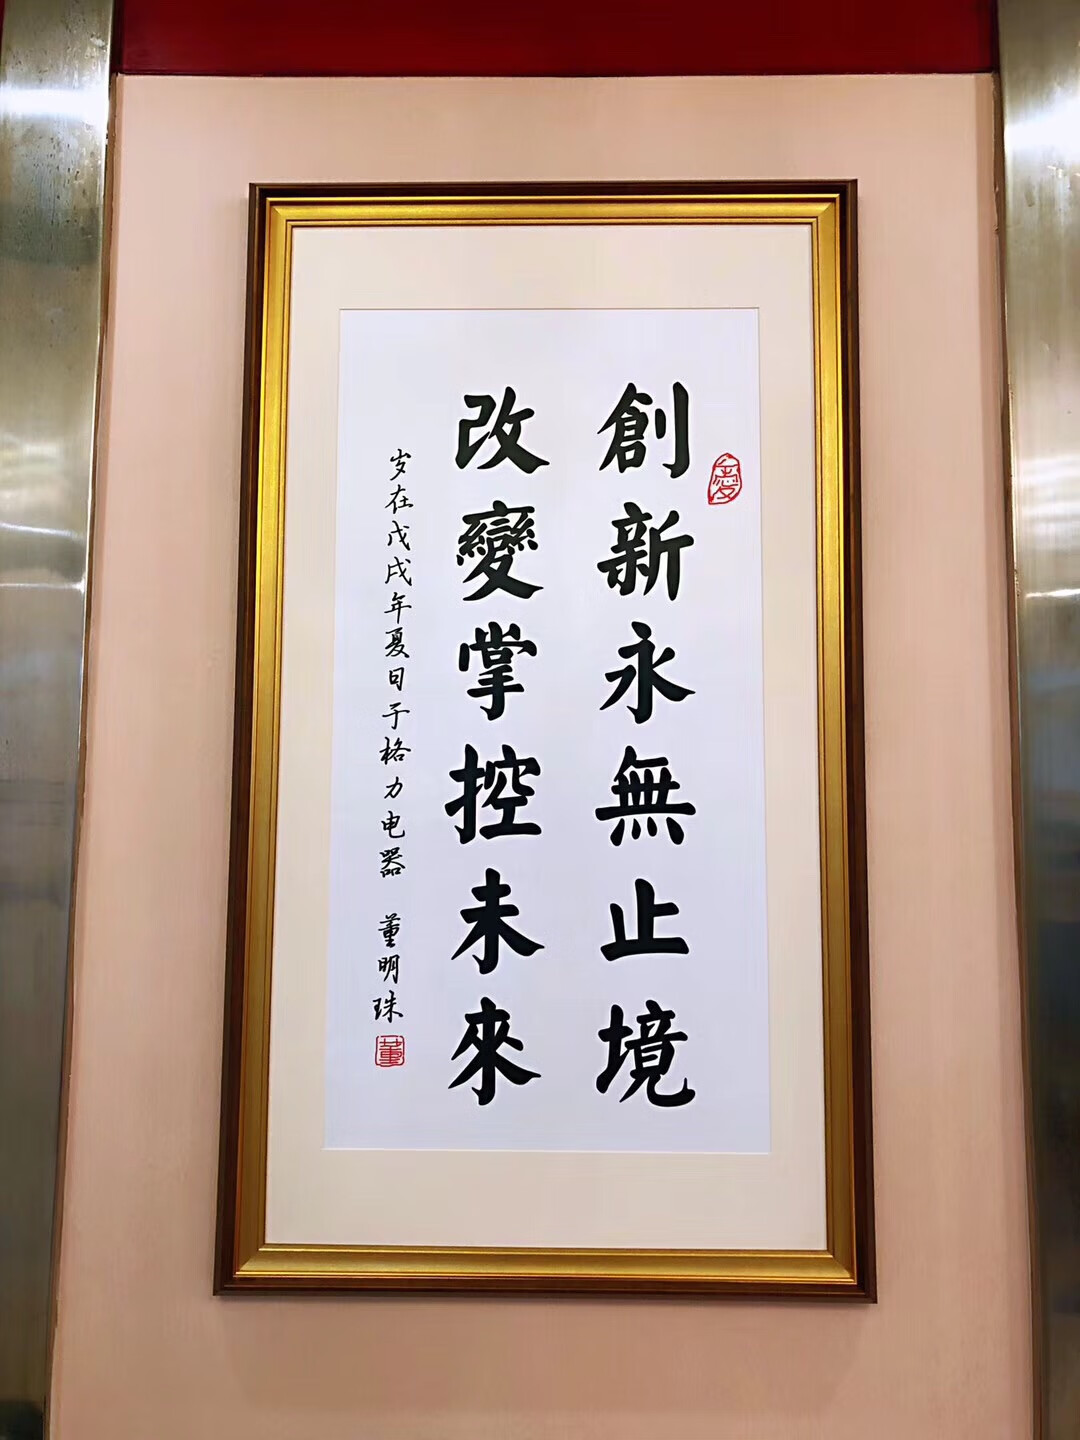 創新永無止境
改變掌控未來
岁在戊戌年夏日于格力电器 董明珠
董